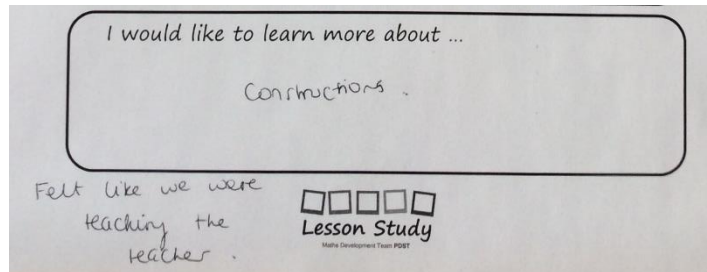 I would like to learn more about ...
Constructions.
Felt like we were
teaching the
teacher.
Lesson Study
Maths Development Team PDST